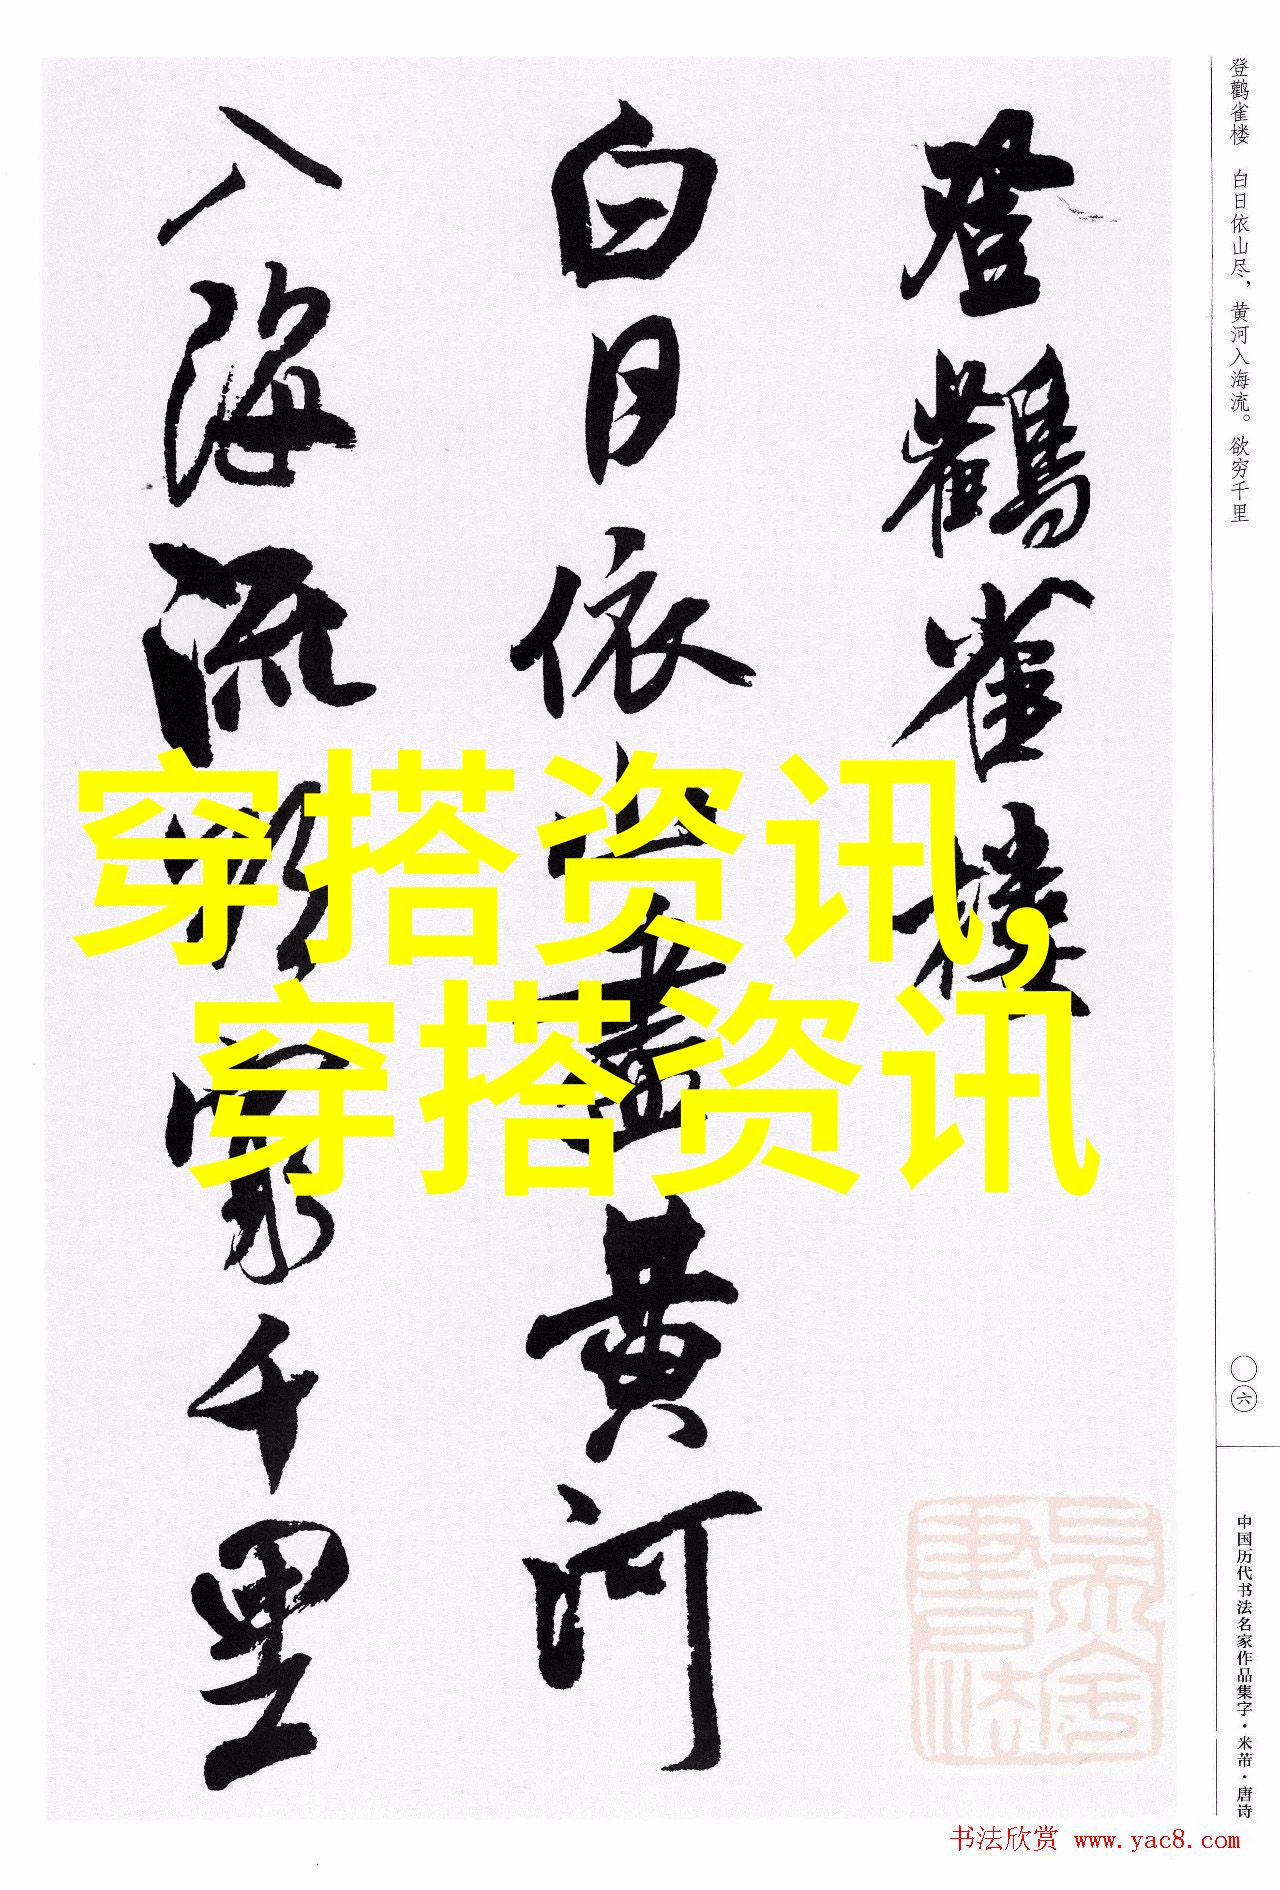 登鹳雀楼 白日依山尽，黄河入海流。欲穷千里
登鸛雀樓
白日依山盡黄河
入海流欲窮千里
穿搭资讯,
穿搭资讯
六
中国历代书法名家作品集字·米芾·唐诗
书法欣赏 www.yac8.com